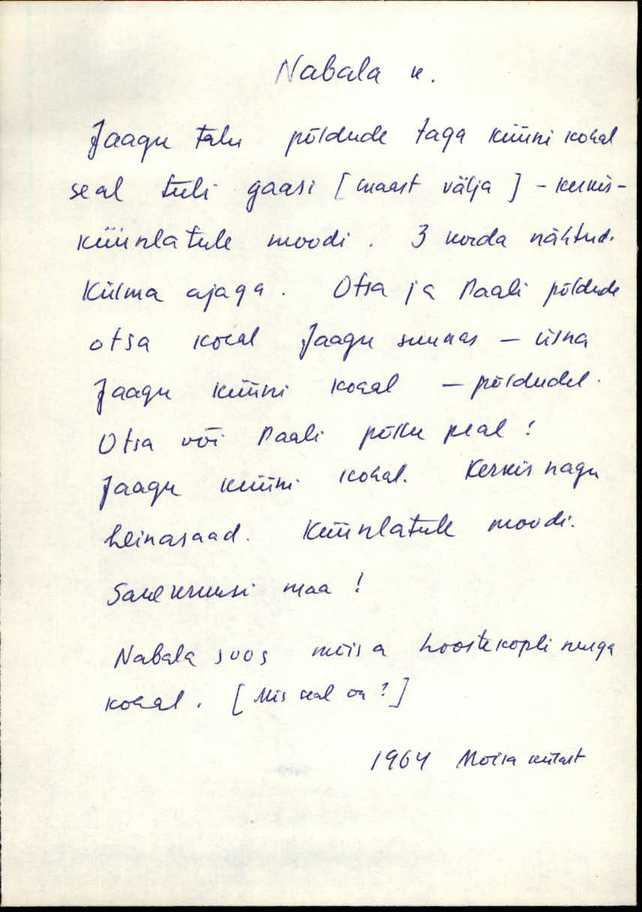 Nabala k.
Jaagu talu põldude taga küüni kohal
seal tuli gaasi [maast välja] - kerkis-
küünlatule moodi. 3 korda nähtud.
Külma ajaga. Otsa ja Paali põldude
otsa kohal Jaagu suunas — üsna
Jaagu küüni kohal — põldudel.
Otsa või Paali põllu peal!
Jaagu küüni kohal. Kerkis nagu
heinasaad. Küünlatule moodi.
Savekruusi maa!
Nabala soos mõisa hoostekopli nurga
kohal. [Mis seal on?]
1964 Mõisa